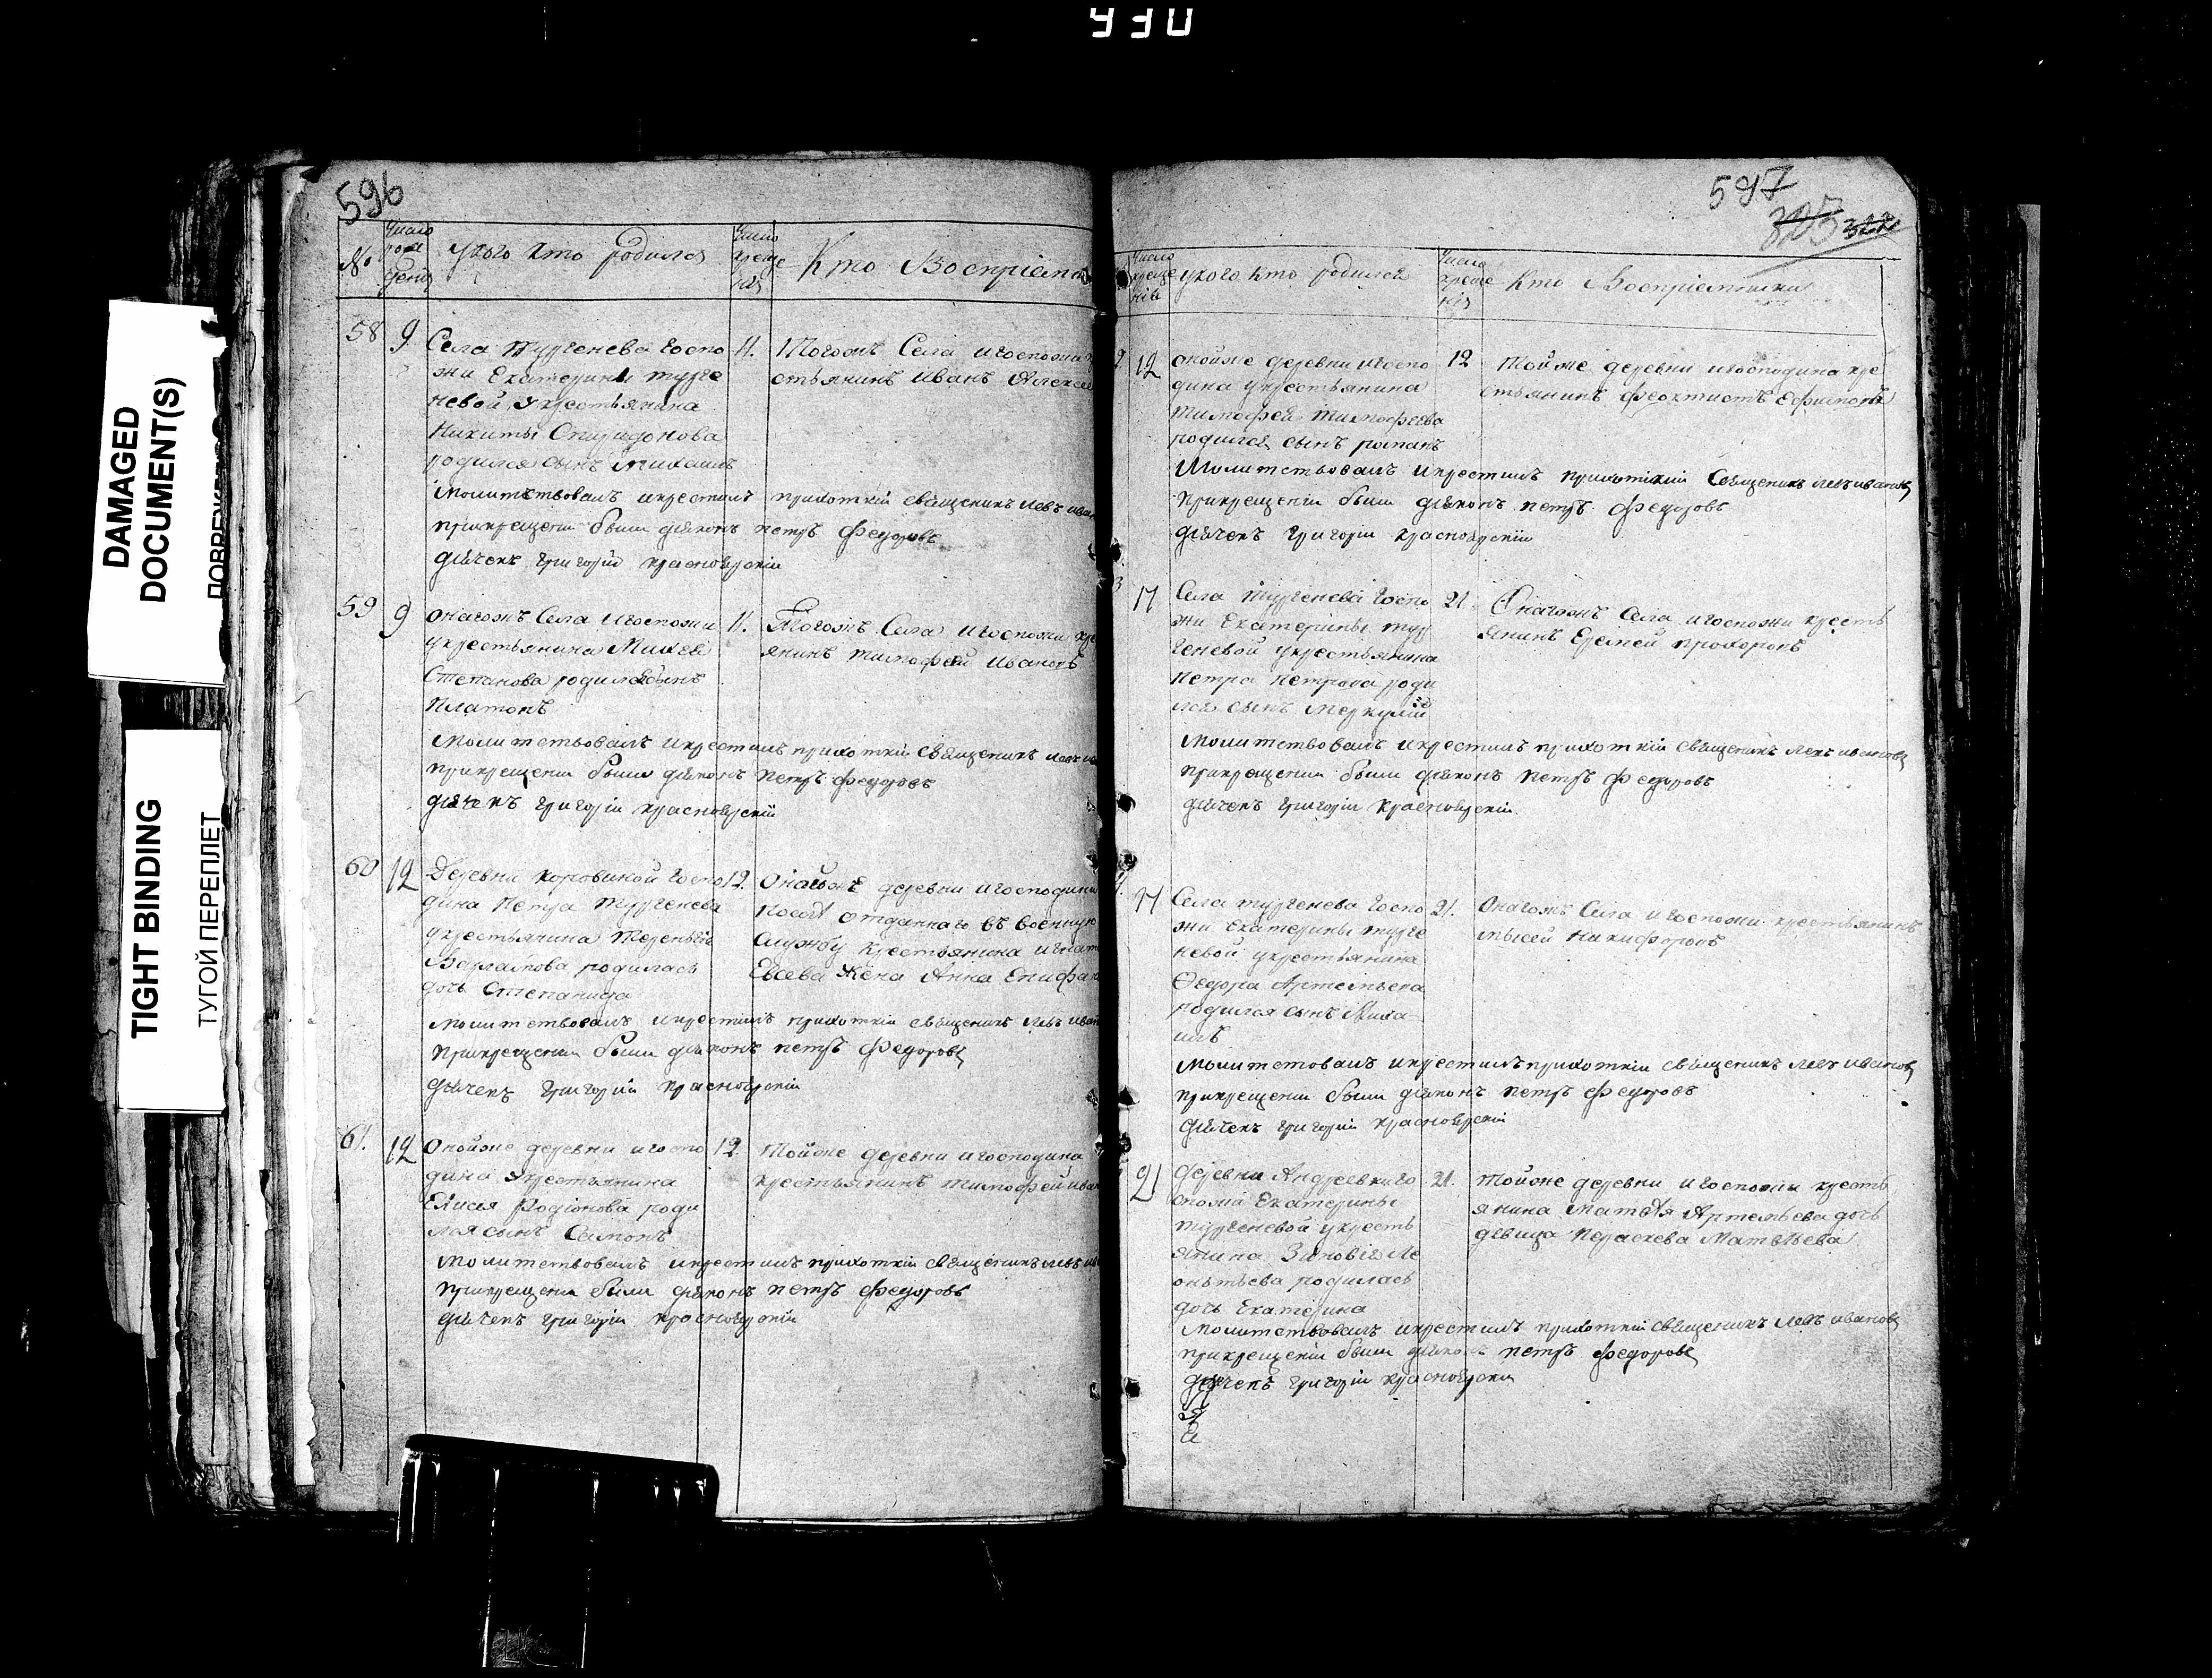 DAMAGED
DOCUMENT(S)
TIGHT BINDING
ТУГОЙ ПЕРЕПЛЕТ
596
№
Число
рож
дени
укого кто родился
Число
креще
нія
Кто Воспріемни
58
9
Села Тургенева госпо
жи Екатерины турге
невой, укрестьянина
Никиты Спиридонова
родился сынъ Михаилъ
11.
Тогожъ Села игоспожи
стьянинъ иванъ Алексе
Молитствовалъ икрестилъ прихоткій свѣщеникъ левъ иван
прикрещени были дїяконъ петръ Федоровъ
дїячекъ григорій красноярскій
59
9
онагожъ Села игоспожи
укрестьянина Михея
Степанова родился сынъ
Платонъ
11.
Тогожъ Села игоспожи кре
янинъ тимофей ивановъ
Молитствовалъ икрестилъ прихоткій свѣщеникъ левъ ив
прикрещени были дїяконъ петръ Федоровъ
дїячекъ григорій красноярскій
60
12
Деревни коровиной госпо
дина Петра Тургенева
укрестьянина Терентія
Варламова родилась
дочь Степанида
12.
Онагожъ деревни игосподина
отданнаго въ военную
службу крестьянина игнат
Евсева Жена Анна Епифан
Молитствовалъ икрестилъ прихоткій свѣщеникъ левъ иван
прикрещени были дїяконъ петръ Федоровъ
дїячекъ григорій красноярскій
61.
12
Онойже деревни игоспо
дина укрестьянина
Елисея Родіонова роди
лся сынъ Самонъ
12.
Тойже деревни игосподина
крестьянинъ тимофей иван
Молитствовалъ икрестилъ прихоткій свѣщеникъ левъ ив
прикрещени были дїяконъ петръ Федоровъ
дїячекъ григорій красноярскій
597
Число
креще
нія
укого кто родился
Число
креще
нія
Кто Воспріемники
12
онойже деревни игоспо
дина укрестьянина
тимофея тимофеева
родился сынъ романъ
12
Тойже деревни игосподина кре
стьянинъ феоктистъ Ефимовъ
Молитствовалъ икрестилъ прихоткій Свѣщеникъ левъ ивановъ
Прикрещеніи были дїяконъ петръ Федоровъ
дїячекъ григорій красноярскій
3
17
Села Тургенева госпо
жи Екатерины тур
геневой укрестьянина
Петра Петрова роди
лся сынъ Меркулій
21.
Онагожъ Села игоспожи кресть
янинъ Еремей прохоровъ
Молитствовалъ икрестилъ прихоткій свѣщеникъ левъ ивановъ
прикрещении были дїяконъ петръ Федоровъ
дїячекъ григорій красноярскій.
17
Села тургенева госпо
жи Екатерины турге
невой укрестьянина
Ѳедора Артемьева
родился сынъ Миха
илъ
21.
Онагожъ Села игоспожи крестьянинъ
мысей никифоровъ
Молитствовалъ икрестилъ прихоткій свѣщеникъ левъ ивановъ
прикрещении были дїяконъ петръ Федоровъ
дїячекъ григорій красноярскій
21
Деревни Андреевки го
спожи Екатерины
Тургеневой укресть
янина Зиновія Ле
онтьева родилась
дочь Екатерина
21.
тойже деревни игоспожи кресть
янина Матвѣя Артемьева дочь
девица Параскева Матвѣева
Молитствовалъ икрестилъ прихоткій свѣщеникъ левъ ивановъ
прикрещеніи были дїяконъ петръ Федоровъ
дїячекъ григорій красноярскій